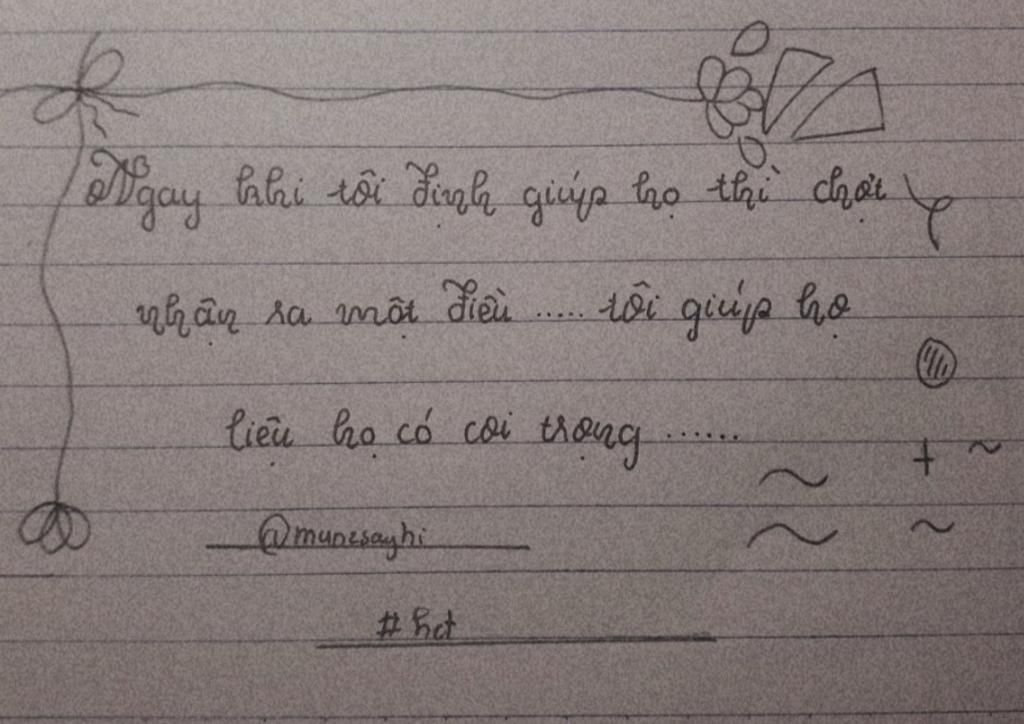 Ngay khi tôi định giúp họ thì chợt
nhận ra một điều ..... tôi giúp họ
liệu họ có coi trọng ......
@munesayhi
# hct